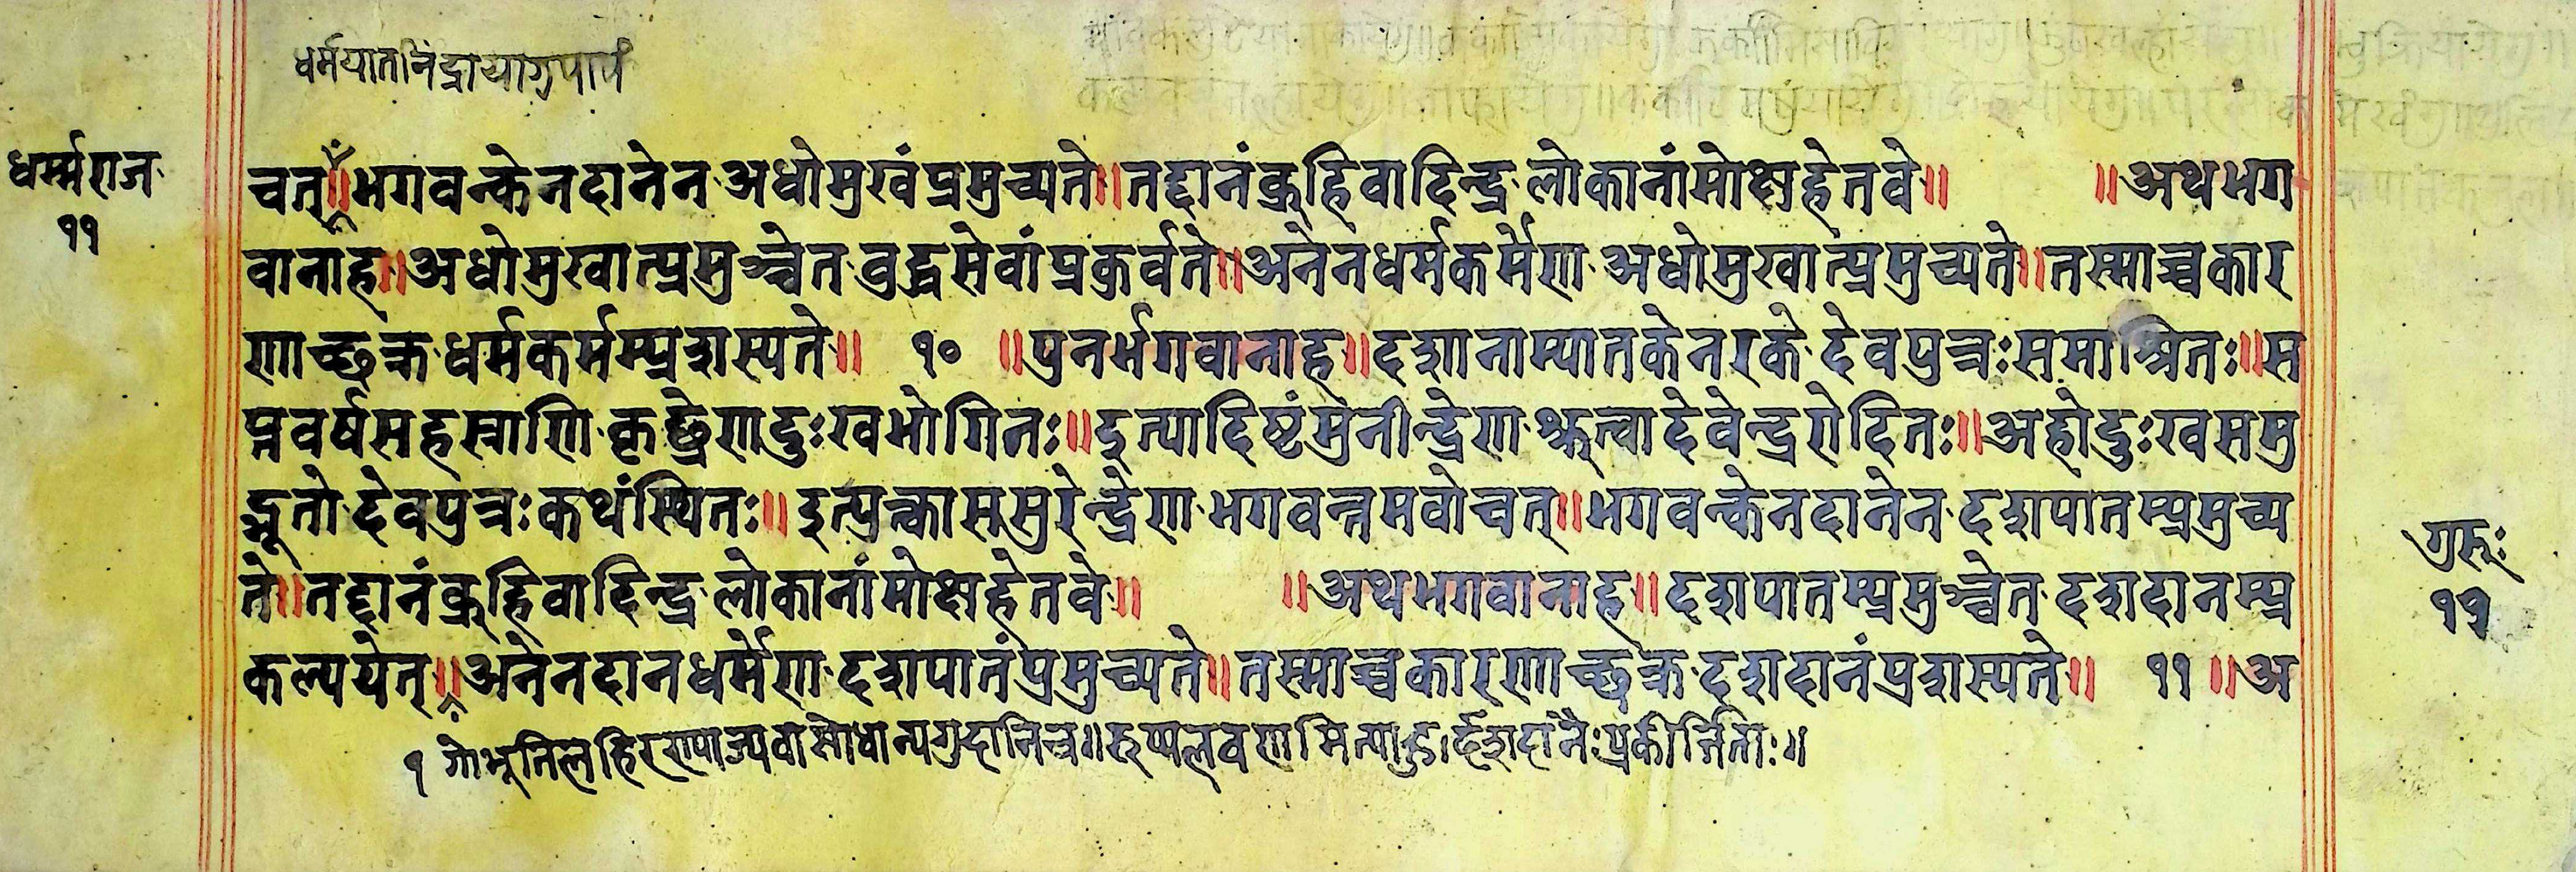 धर्मयातानिंद्रायागुपापं
धर्म्मराज
११
चत्॥भगवन्केनदानेन अधोमुखंप्रमुच्यते॥तद्दानंब्रूहिवादिन्द्र लोकानांमोक्षहेतवे॥ ॥अथभग
वानाह॥अधोमुखात्प्रमुञ्चेत वुद्धसेवांप्रकुर्वते॥अनेनधर्मकर्मेण अधोमुखात्प्रमुच्यते॥तस्माच्चकार
णाच्छक्र धर्मकर्मम्प्रशस्यते॥ १० ॥पुनर्भगवानाह॥दशानाम्पातकेनरके देवपुत्रःसमाश्रितः॥स
प्तवर्षसहस्राणि कृच्छ्रेणदुःखभोगितः॥इत्यादिष्टंमुनीन्द्रेण श्रुत्वादेवेन्द्ररोदितः॥अहोदुःखसमु
द्भूतो देवपुत्रःकथंस्थितः॥इत्युक्त्वाससुरेन्द्रेण भगवन्तमवोचत्॥भगवन्केनदानेन दशपातम्प्रमुच्य
ते॥तद्दानंब्रूहिवादिन्द्र लोकानांमोक्षहेतवे॥ ॥अथभगवानाह॥दशपातम्प्रमुञ्चेत दशदानम्प्र
कल्पयेत्॥अनेनदानधर्मेण दशपातंप्रमुच्यते॥तस्माच्चकारणाच्छक्र दशदानंप्रशस्यते॥ ११ ॥अ
गुरुः
११
१ गोभूतिलहिरण्याज्यवासोधान्यगुडानिच॥रुप्यलवणमित्याहुर्दशदानैःप्रकीर्त्तिताः॥